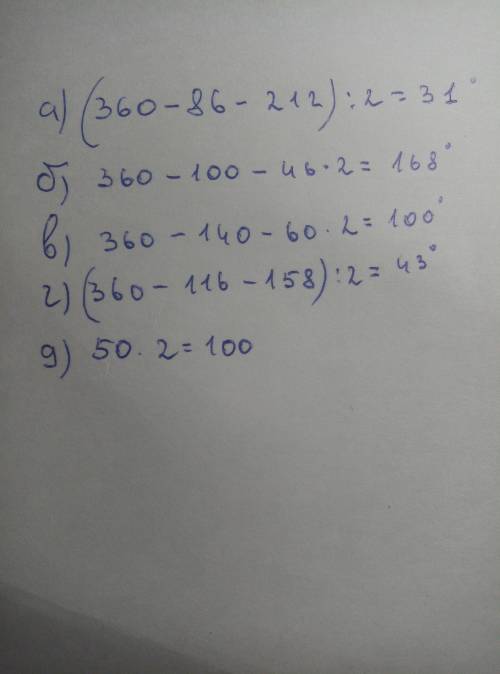 а) (360 - 86 - 212) : 2 = 31°
б) 360 - 100 - 46 · 2 = 168°
в) 360 - 140 - 60 · 2 = 100°
г) (360 - 116 - 158) : 2 = 43°
д) 50 · 2 = 100